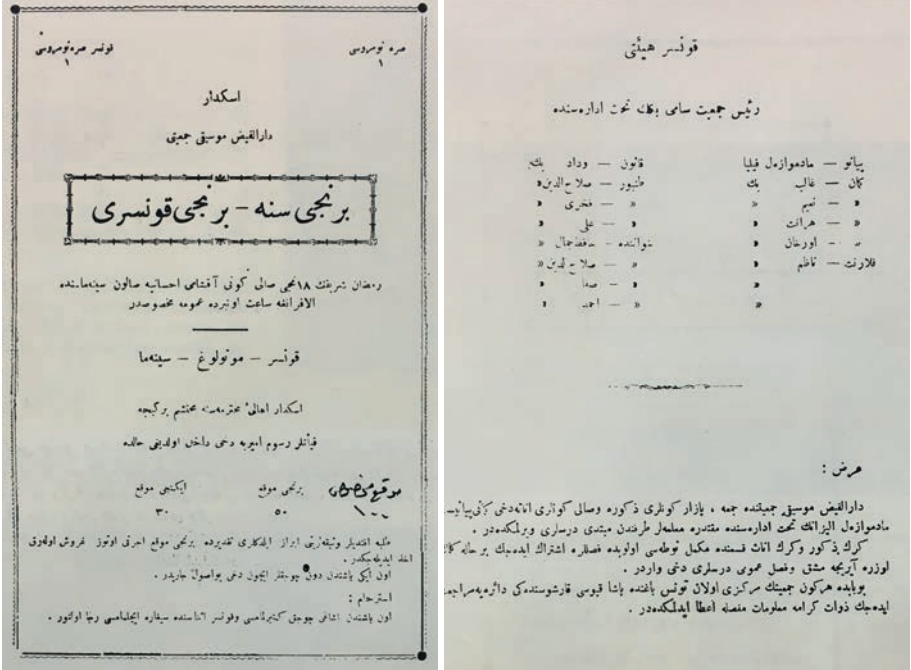 صره نومروسی
١
قونسر صره نومروسی
١
اسكدار
دارالفیض موسیقی جمعیتی
برنجی سنه - برنجی قونسری
رمضان شریفك ١٨نجی صالی كونی آقشامی احسانیه صالون سینه‌ماسنده
الافرانغه ساعت اونبرده عمومه مخصوصدر
قونسر — مونولوغ — سینه‌ما
اسكدار اهالیٔ محترمه‌سنه محتشم بر كیجه
فیأتلر رسوم امیریه دخی داخل اولدیغی حالده
موقع مخصوص
١٠٠
برنجی موقع
٥٠
ایكنجی موقع
٣٠
طلبه افندیلر وثیقه‌لرینی ابراز ایلدكلری تقدیرده برنجی موقع اجرتی اوتوز غروش اوله‌رق
اخذ ایدیله‌جكدر.
اون ایكی یاشندن دون چوجقلر ایچون دخی بواصول جاریدر.
استرحام :
اون یاشندن اشاغی چوجق كتیرلمامسی وقونسر اثناسنده سیغاره ایچلمامسی رجا اولنور.
قونسر هیئتی
رئیس جمعیت سامی بكك تحت اداره‌سنده
پیانو — مادموازل فیلیا
كمان — غالب بك
» — نعیم »
» — هرانت »
— اورخان »
قلارنت — ناظم »
قانون — وداد بك
طنبور — صلاح‌الدین »
» — فخری »
» — علی »
خواننده — حافظ جمال »
» — صلاح‌الدین »
» — صفا »
» — احمد »
عرض :
دارالفیض موسیقی جمعیتنده جمعه ، بازار كونلری ذكوره وصالی كونلری اناثه دخی
مادموازل الیزانك تحت اداره‌سنده مقتدره معلملر طرفندن مبتدی درسلری ویرلمكده‌در.
كرك ذكور وكرك اناث قسمنده مكمل نوطه‌سی اولوبده فصللره اشتراك ایده‌جك بر حاله
اوزره آیریجه مشق وفصل عمومی درسلری دخی واردر.
بوبابده هركون جمعیتك مركزی اولان باغنده پاشا قپوسی قارشوسنده‌كی دائره‌یه
ایده‌جك ذوات كرامه معلومات مفصله اعطا ایدلمكده‌در.